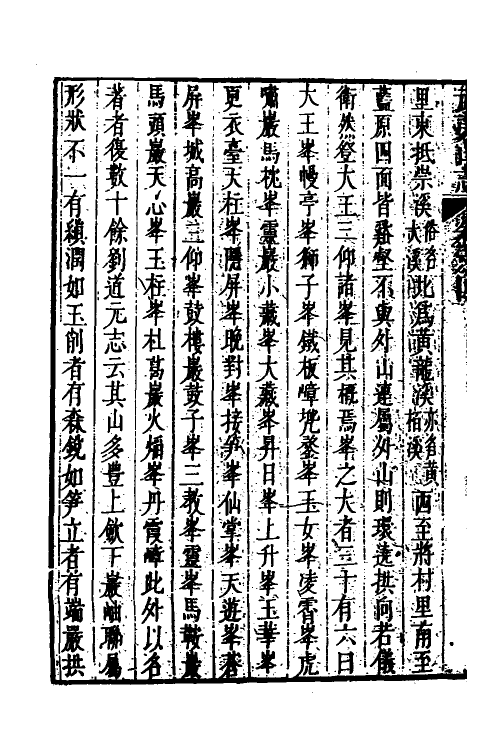 里東抵崇溪俗名大溪北爲黄龍溪亦名黄柏溪西至將村里南至
藍原四面皆谿壑不與外山連屬外山則環遶拱向若儀
衛然登大王三仰諸峯見其概焉峯之大者三十有六曰
大王峯幔亭峯獅子峯鐵板嶂兜鍪峯玉女峯凌霄峯虎
嘯巖馬枕峯靈巖小藏峯大藏峯昇日峯上升峯玉華峯
更衣臺天柱峯隱屏峯晚對峯接笋峯仙掌峯天遊峯蒼
屏峯城高巖三仰峯鼓樓巖鼓子峯三教峯靈峯馬鞍巖
馬頭巖天心峯玉柱峯杜葛巖火焰峯丹霞嶂此外以名
著者復數十餘劉道元志云其山多豐上歛下巖岫聯屬
形狀不一有縝潤如玉削者有森銳如笋立者有端嚴拱